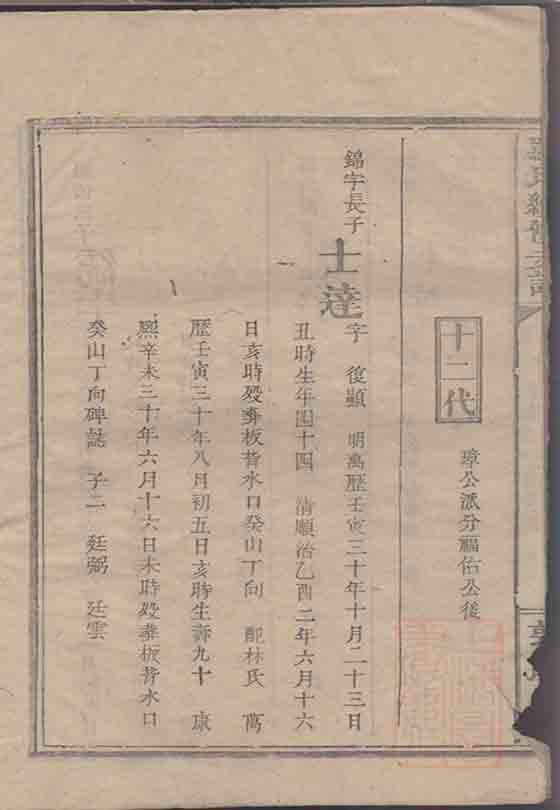 十二代
璋公派分福佑公後
錦字長子
士達
字 復顯 明萬歷壬寅三十年十月二十三日
丑時生年四十四 清順治乙酉二年六月十六
日亥時歿葬板背水口癸山丁向 配林氏 萬
歷壬寅三十年八月初五日亥時生壽九十 康
熙辛未三十年六月十六日未時歿葬板背水口
癸山丁向碑誌 子二 廷弼 廷雲